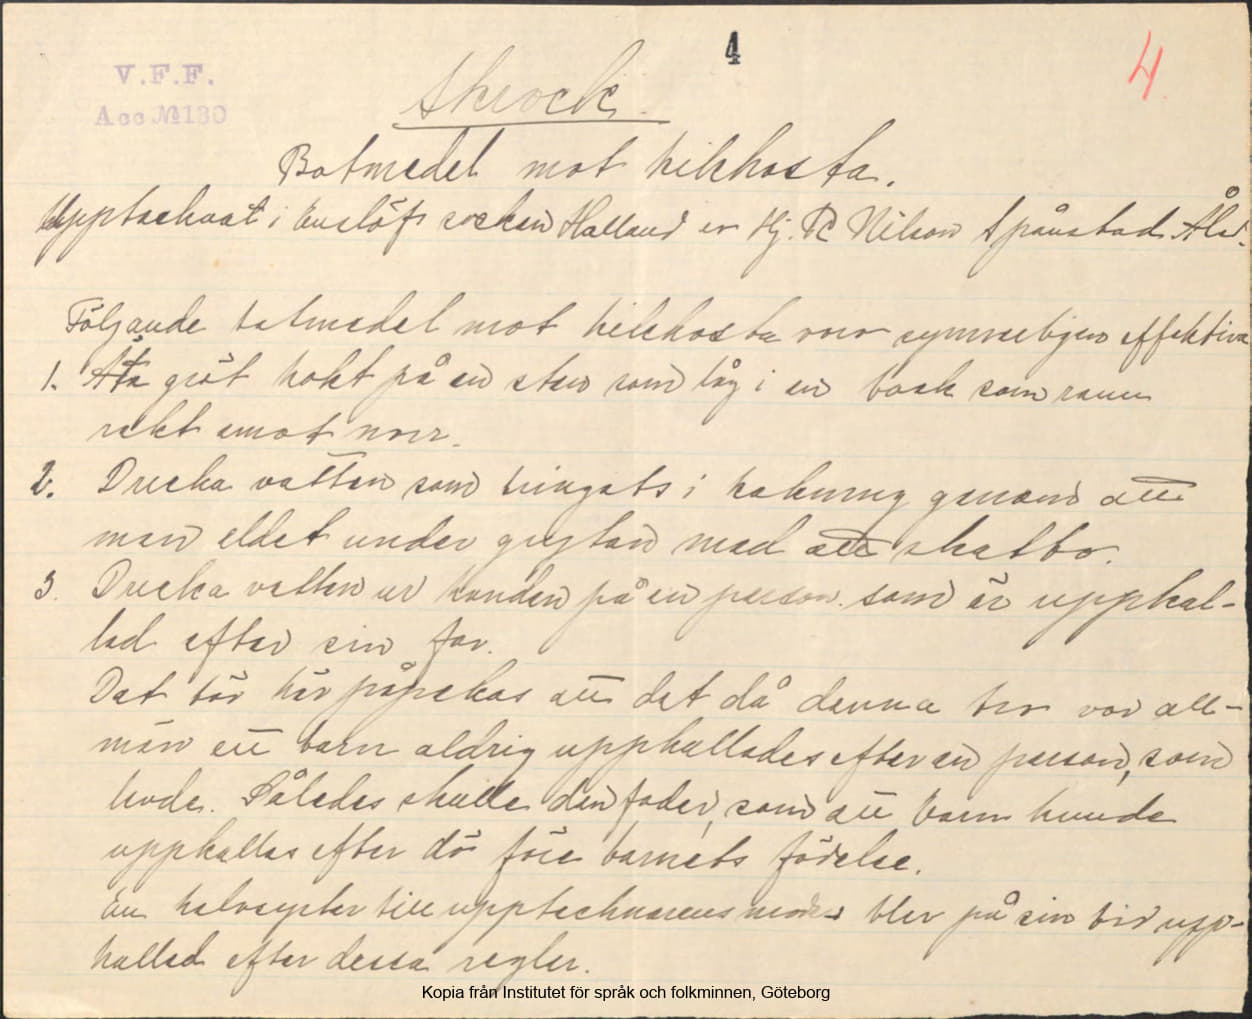 4
4
V.F.F.
Acc № 130
Skrock.
Botmedel mot kikhosta.
Upptecknat i Enslöfs socken Halland av Hj. R Nilson Spånstad Åled.
Följande botmedel mot kikhosta voro synnerligen effektiva
1. Äta gröt kokt på en sten som låg i en bäck som rann
rakt emot norr.
2. Dricka vatten som tvingats i kokning genom att
man eldat under grytan med ett skatbo.
3. Dricka vatten ur handen på en person som är uppkal-
lad efter sin far.
Det bör här påpekas att det då denna tro var all-
män ett barn aldrig uppkallades efter en person, som
levde. Således skulle den fader, som ett barn kunde
uppkallas efter dö före barnets födelse.
En halvsyster till upptecknarens moder blev på sin tid upp-
kallad efter dessa regler.
Kopia från Institutet för språk och folkminnen, Göteborg